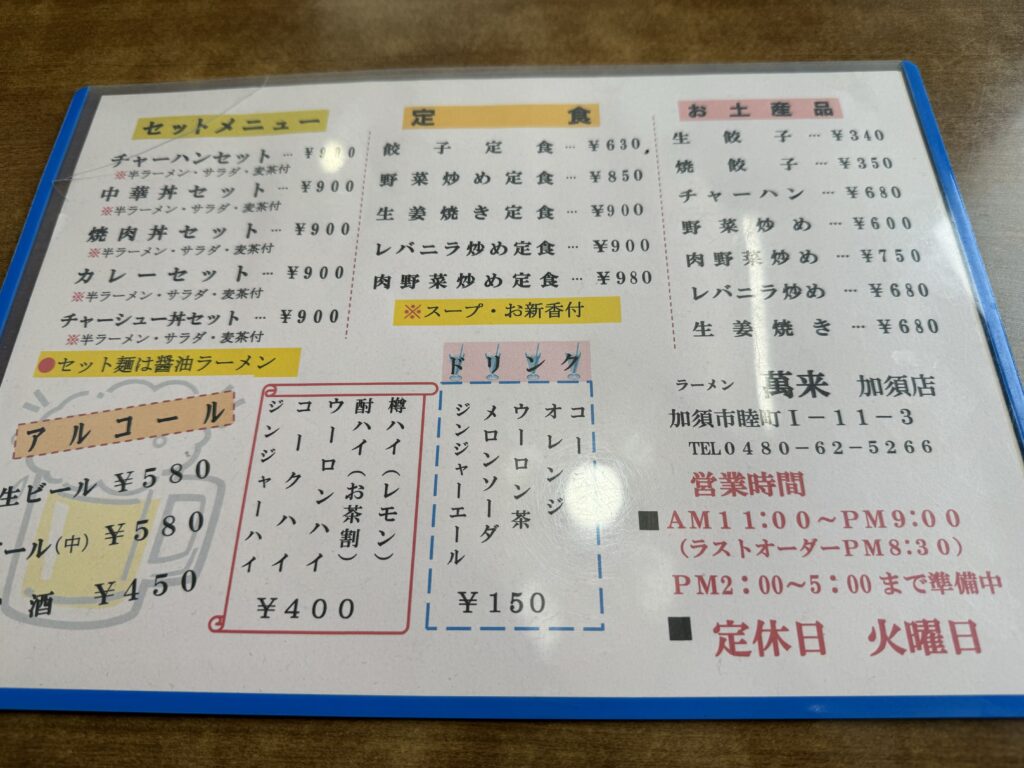 セットメニュー
チャーハンセット … ¥900
※半ラーメン・サラダ・麦茶付
中華丼セット … ¥900
※半ラーメン・サラダ・麦茶付
焼肉丼セット … ¥900
※半ラーメン・サラダ・麦茶付
カレーセット … ¥900
※半ラーメン・サラダ・麦茶付
チャーシュー丼セット … ¥900
※半ラーメン・サラダ・麦茶付
●セット麺は醤油ラーメン
定食
餃子定食 … ¥630
野菜炒め定食 … ¥850
生姜焼き定食 … ¥900
レバニラ炒め定食 … ¥900
肉野菜炒め定食 … ¥980
※スープ・お新香付
お土産品
生餃子 … ¥340
焼餃子 … ¥350
チャーハン … ¥680
野菜炒め … ¥600
肉野菜炒め … ¥750
レバニラ炒め … ¥680
生姜焼き … ¥680
アルコール
生ビール ¥580
ール(中) ¥580
酒 ¥450
樽ハイ(レモン)
酎ハイ(お茶割)
ウーロンハイ
コークハイ
ジンジャーハイ
¥400
ドリンク
コー
オレンジ
ウーロン茶
メロンソーダ
ジンジャーエール
¥150
ラーメン 萬来 加須店
加須市睦町1-11-3
TEL0480-62-5266
営業時間
■AM11:00～PM9:00
(ラストオーダーPM8:30)
PM2:00～5:00まで準備中
■定休日 火曜日